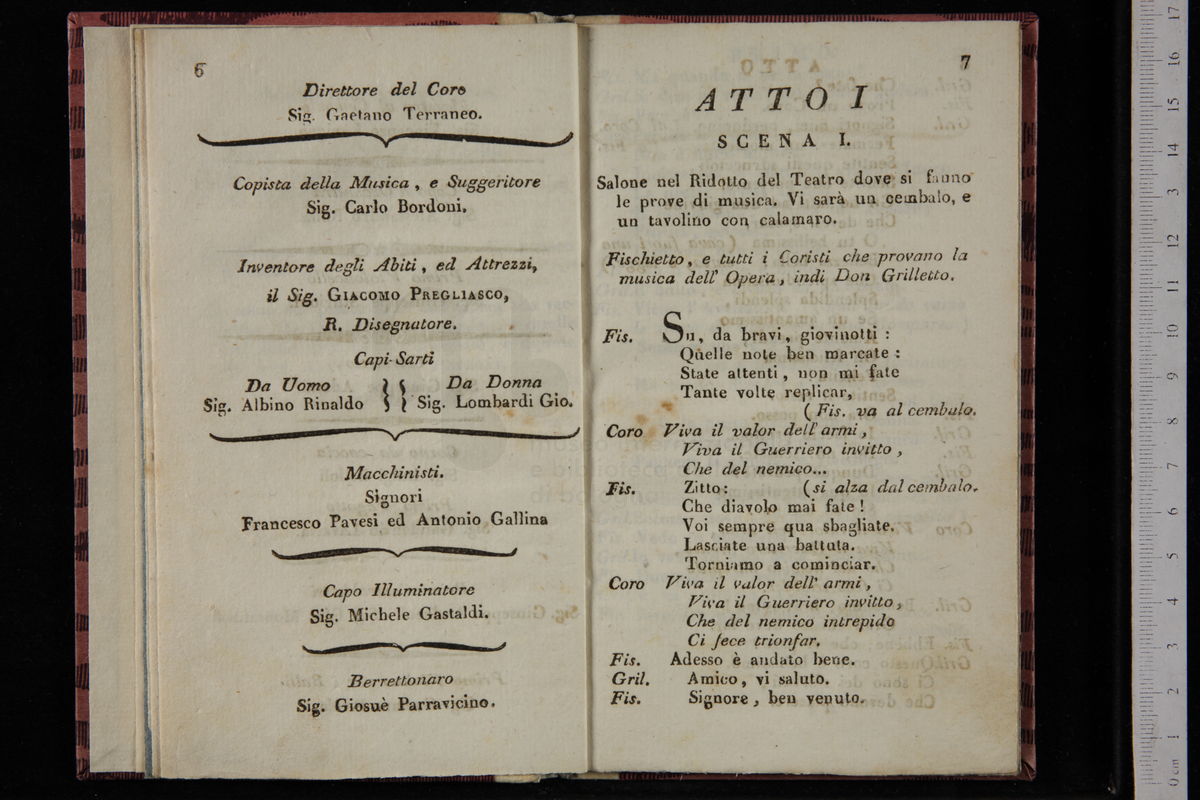 6
Direttore del Coro
Sig. Gaetano Terraneo.
Copista della Musica, e Suggeritore
Sig. Carlo Bordoni.
Inventore degli Abiti, ed Attrezzi,
il Sig. GIACOMO PREGLIASCO,
R. Disegnatore.
Capi-Sarti
Da Uomo } { Da Donna
Sig. Albino Rinaldo } { Sig. Lombardi Gio.
Macchinisti.
Signori
Francesco Pavesi ed Antonio Gallina
Capo Illuminatore
Sig. Michele Gastaldi.
Berrettonaro
Sig. Giosuè Parravicino.
7
ATTO I
SCENA I.
Salone nel Ridotto del Teatro dove si fanno
le prove di musica. Vi sarà un cembalo, e
un tavolino con calamaro.
Fischietto, e tutti i Coristi che provano la
musica dell' Opera, indi Don Grilletto.
Fis. Su, da bravi, giovinotti:
Quelle note ben marcate:
State attenti, non mi fate
Tante volte replicar,
(Fis. va al cembalo.
Coro Viva il valor dell' armi,
Viva il Guerriero invitto,
Che del nemico...
Fis. Zitto: (si alza dal cembalo.
Che diavolo mai fate!
Voi sempre qua sbagliate.
Lasciate una battuta.
Torniamo a cominciar.
Coro Viva il valor dell' armi,
Viva il Guerriero invitto,
Che del nemico intrepido
Ci fece trionfar.
Fis. Adesso è andato bene.
Gril. Amico, vi saluto.
Fis. Signore, ben venuto.